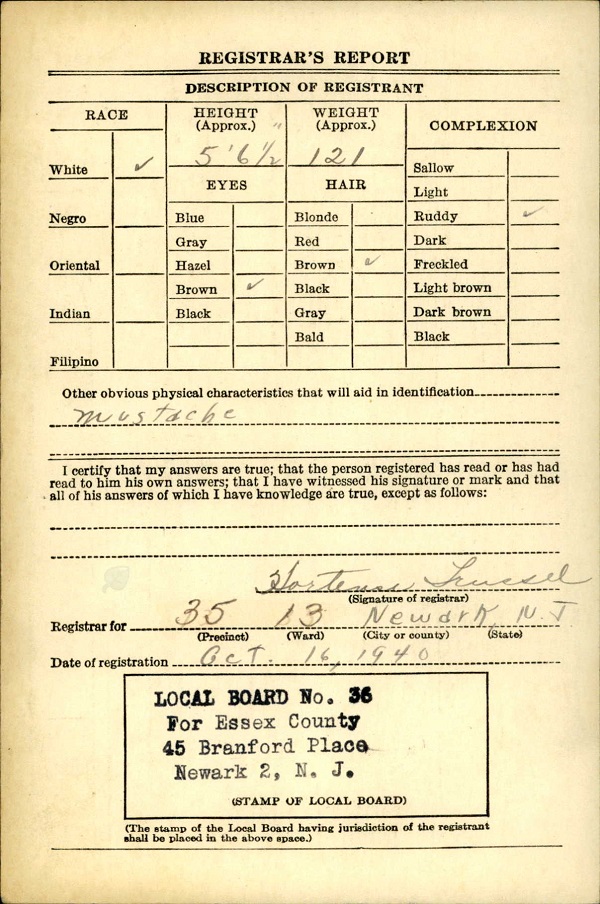 REGISTRAR'S REPORT
DESCRIPTION OF REGISTRANT
RACE
HEIGHT
(Approx.)
WEIGHT
(Approx.)
COMPLEXION
White ✓
5' 6 1/2"
121
Sallow
Light
EYES
HAIR
Negro
Blue
Blonde
Ruddy ✓
Gray
Red
Dark
Oriental
Hazel
Brown ✓
Freckled
Brown ✓
Black
Light brown
Indian
Black
Gray
Dark brown
Bald
Black
Filipino
Other obvious physical characteristics that will aid in identification
Mustache
I certify that my answers are true; that the person registered has read or has had
read to him his own answers; that I have witnessed his signature or mark and that
all of his answers of which I have knowledge are true, except as follows:
Hortense
(Signature of registrar)
Registrar for 35 13 Newark, N.J.
(Precinct) (Ward) (City or county) (State)
Date of registration Oct. 16, 1940
LOCAL BOARD No. 36
For Essex County
45 Branford Place
Newark 2, N. J.
(STAMP OF LOCAL BOARD)
(The stamp of the Local Board having jurisdiction of the registrant
shall be placed in the above space.)